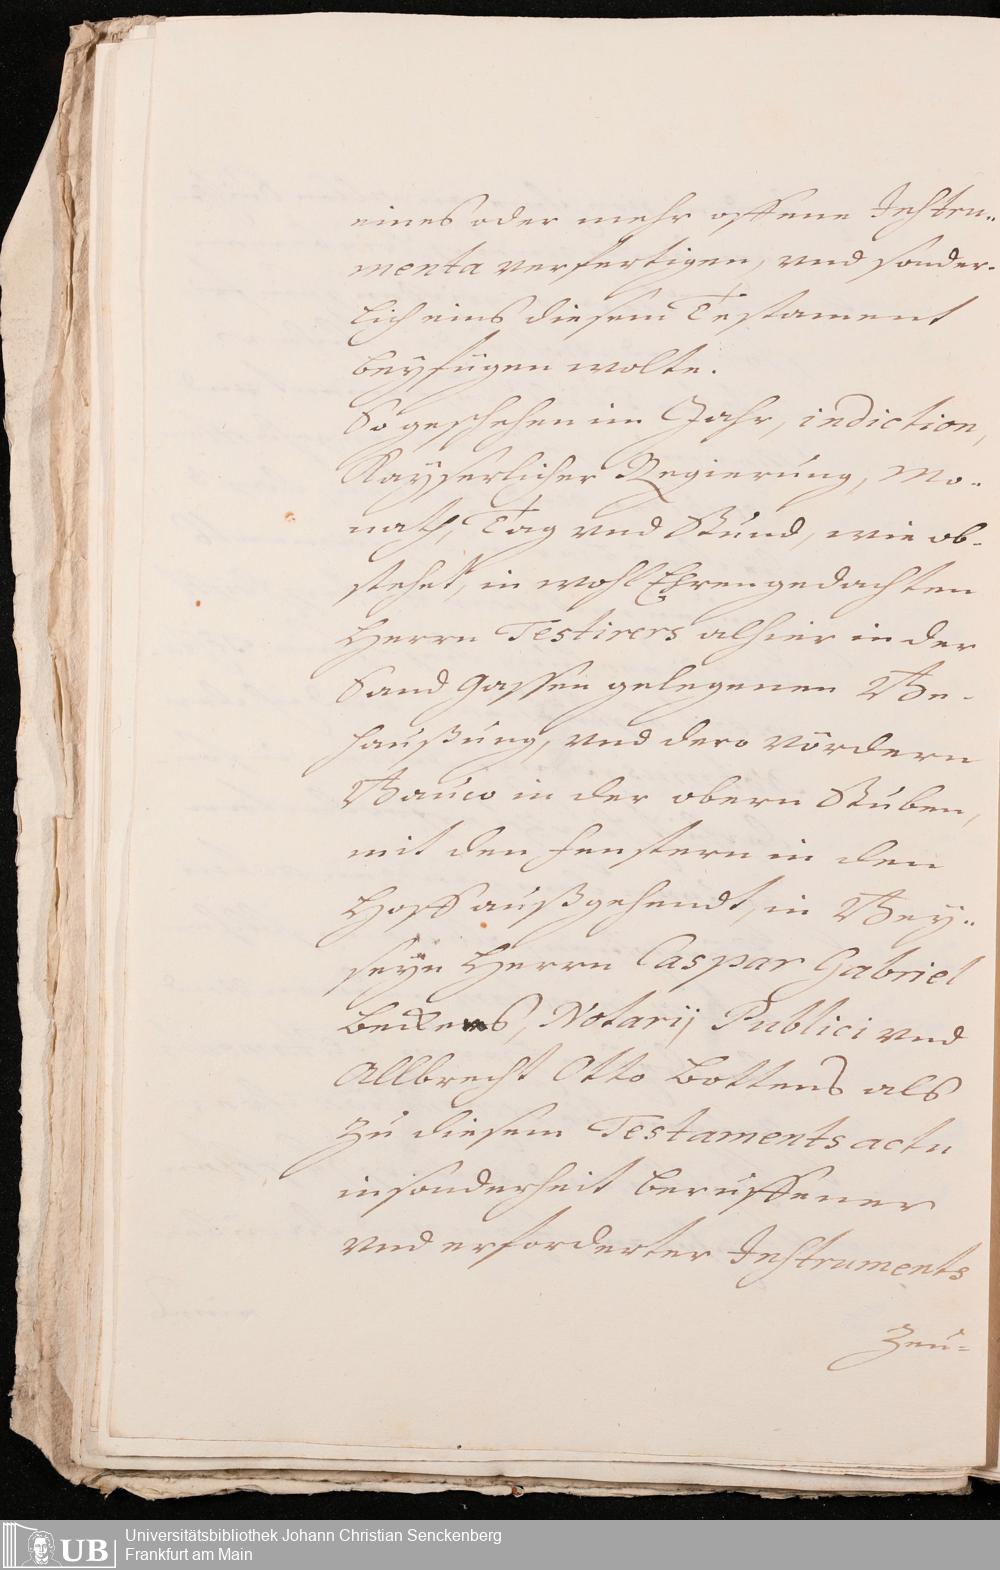 eines oder mehr offene Instru„
menta verfertigen, vnd sonder-
lich eins diesem Testament
beyfügen wolte.
So geschehen im Jahr, indiction,
Kayserlicher Regierung, Mo-
nath, Tag vnd Stund, wie ob-
stehet, in wohl Ehrengedachten
Herrn Testirers alhier in der
Sand Gassen gelegenen Be-
haußung, vnd dero vördern
Bauw in der obern Stuben,
mit den Fenstern in den
Hoff außgehendt, in Bey„
seyn Herrn Caspar Gabriel
Notarij Publici vnd
Allbrecht Otto Bottens als
zu diesem Testaments actu
insonderheit beruffener
vnd erforderter Instruments
Zeu-
Universitätsbibliothek Johann Christian Senckenberg
Frankfurt am Main
UB